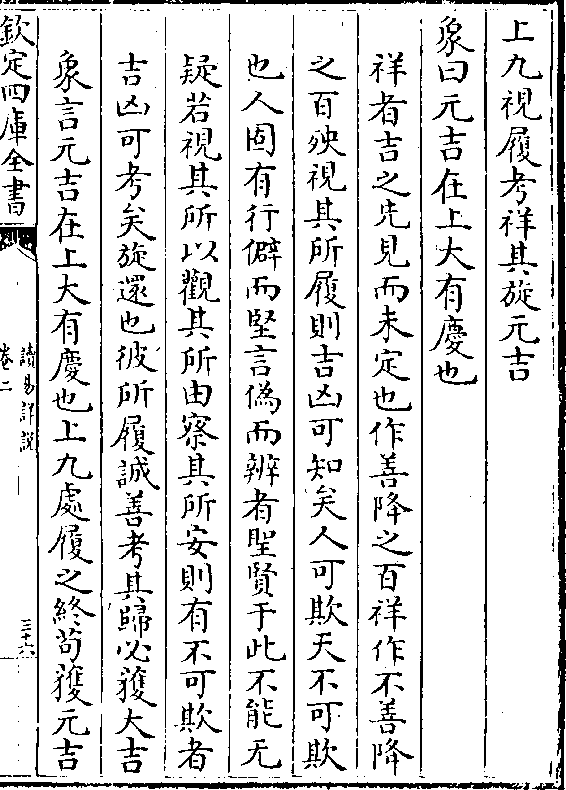 上九視履考祥其旋元吉
象曰元吉在上大有慶也
祥者吉之先見而未定也作善降之百祥作不善降
之百殃視其所履則吉凶可知矣人可欺天不可欺
也人固有行僻而堅言偽而辨者聖賢于此不能无
疑若視其所以觀其所由察其所安則有不可欺者
吉凶可考矣旋還也彼所履誠善考其歸必獲大吉
象言元吉在上大有慶也上九處履之終苟獲元吉
欽定四庫全書
讀易詳說
卷二
三十六